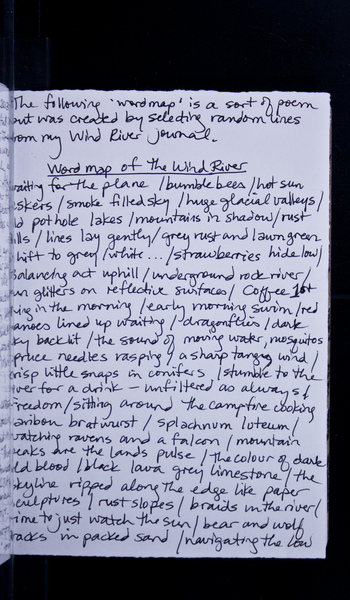 The following 'wordmap' is a sort of poem
but was created by selecting random lines
from my Wind River journal.
Word map of the Wind River
waiting for the plane / bumble bees / hot sun
/ smoke filled sky / huge glacial valleys /
pothole lakes / mountains in shadow / rust
hills / lines lay gently / grey rust and lawn green
shift to grey / white ... / strawberries hide low /
balancing act uphill / underground rock river /
sun glitters on reflective surfaces / Coffee 1st
thing in the morning / early morning swim / red
canoes lined up waiting / dragonflies / dark
sky backlit / the sound of moving water, mosquitos
spruce needles rasping / a sharp tangy wind /
crisp little snaps in conifers / stumble to the
river for a drink – unfiltered as always /
freedom / sitting around the campfire cooking
caribou bratwurst / splachnum luteum /
watching ravens and a falcon / mountain
peaks are the lands pulse / the colour of dark
old blood / black lava grey limestone / the
skyline ripped along the edge like paper
sculptures / rust slopes / braids in the river /
time to just watch the sun / bear and wolf
tracks in packed sand / navigating the low